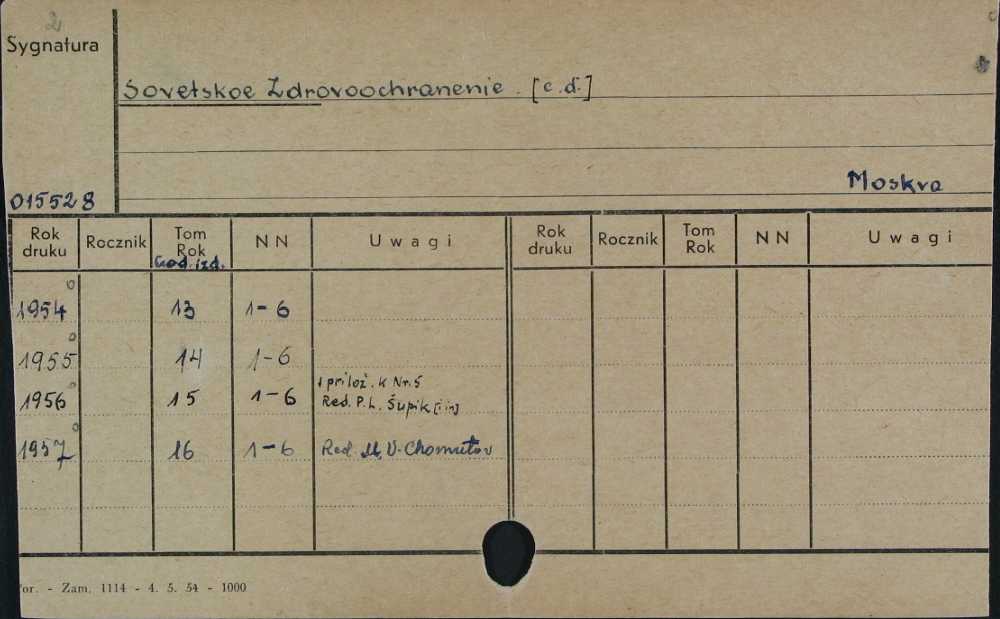 2
Sygnatura
Sovetskoe Zdrovoochranenie. [c.d.]
015528
Moskva
Rok druku Rocznik Tom Rok NN Uwagi Rok druku Rocznik Tom Rok NN Uwagi
God. izd.
1954 13 1-6
1955 14 1-6
1 prilož. k Nr. 5
1956 15 1-6 Red. P. L. Šupik [i in]
1957 16 1-6 Red. V. Chomutov
or. - Zam. 1114 - 4. 5. 54 - 1000